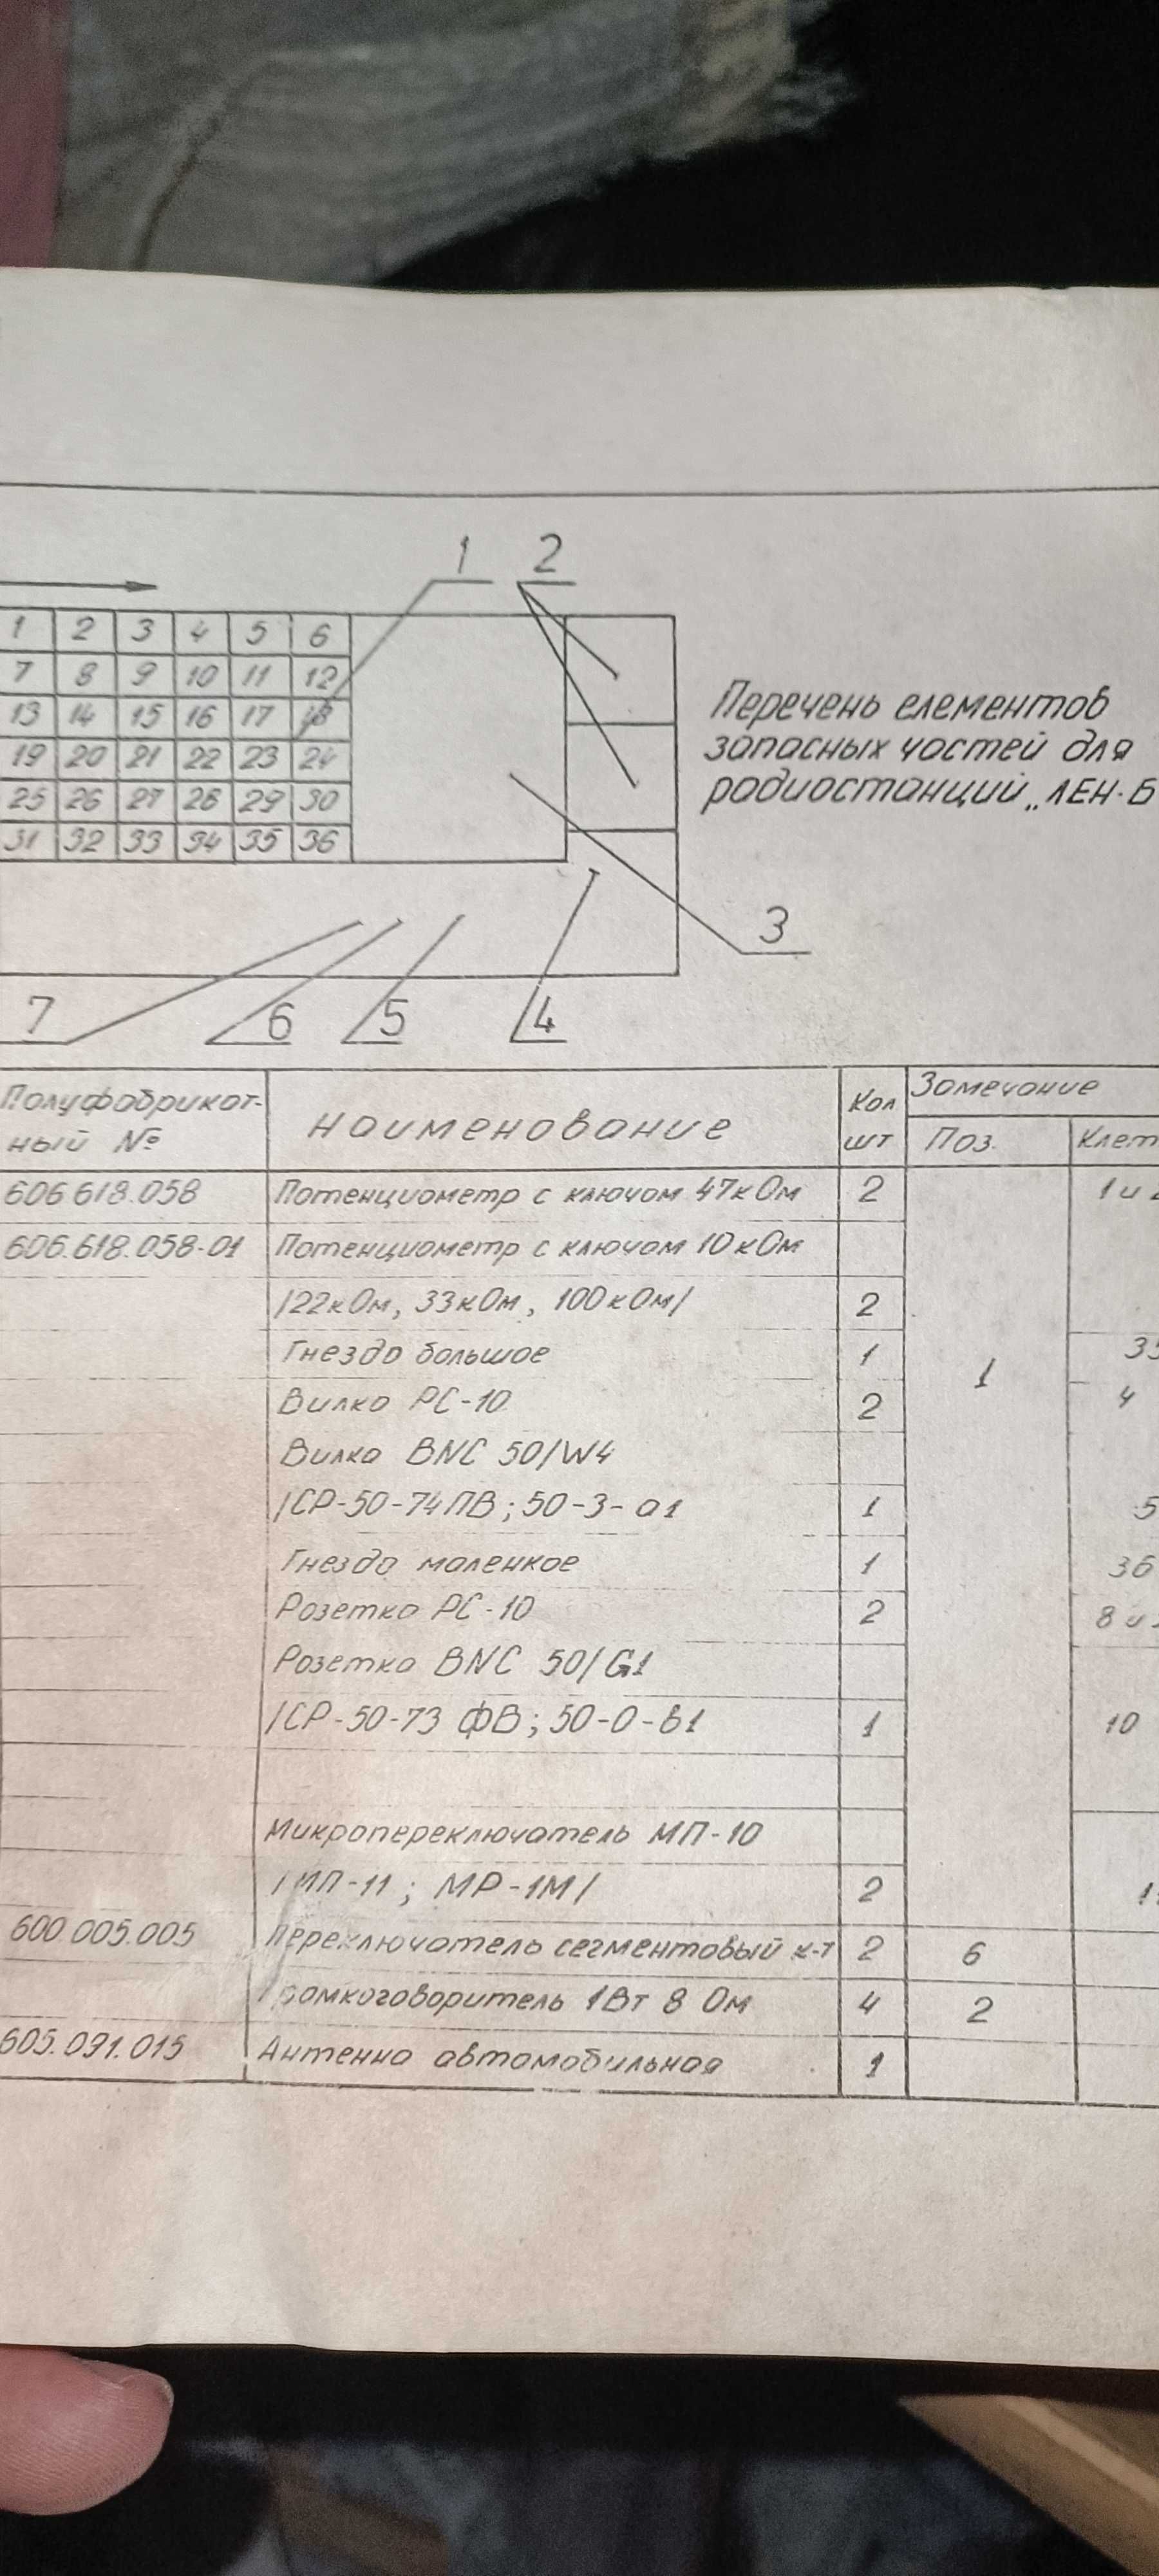 1 2
1 2 3 4 5 6
7 8 9 10 11 12
13 14 15 16 17 18
19 20 21 22 23 24
25 26 27 28 29 30
31 32 33 34 35 36
Перечень елементов
запасных частей для
радиостанций „ЛЕН-Б
3
7 6 5 4
Полуфабрикат-
ный № Наименование Кол шт Замечание
Поз. Клет
606.618.058 Потенциометр с ключом 47кОм 2 1 и
606.618.058-01 Потенциометр с ключом 10кОм
/22кОм, 33кОм, 100кОм/ 2
Гнездо большое 1 35
1
Вилка РС-10 2 4
Вилка BNC 50/W4
/СР-50-74ПВ; 50-3-a1 1 5
Гнездо маленкое 1 36
Розетка РС-10 2 8 и
Розетка BNC 50/G1
/СР-50-73 ФВ; 50-0-b1 1 10
Микропереключатель МП-10
/МП-11; МР-1М/ 2
600.005.005 Переключатель сегментовый к-т 2 6
Громкоговоритель 1Вт 8 Ом 4 2
605.091.015 Антенна автомобильная 1